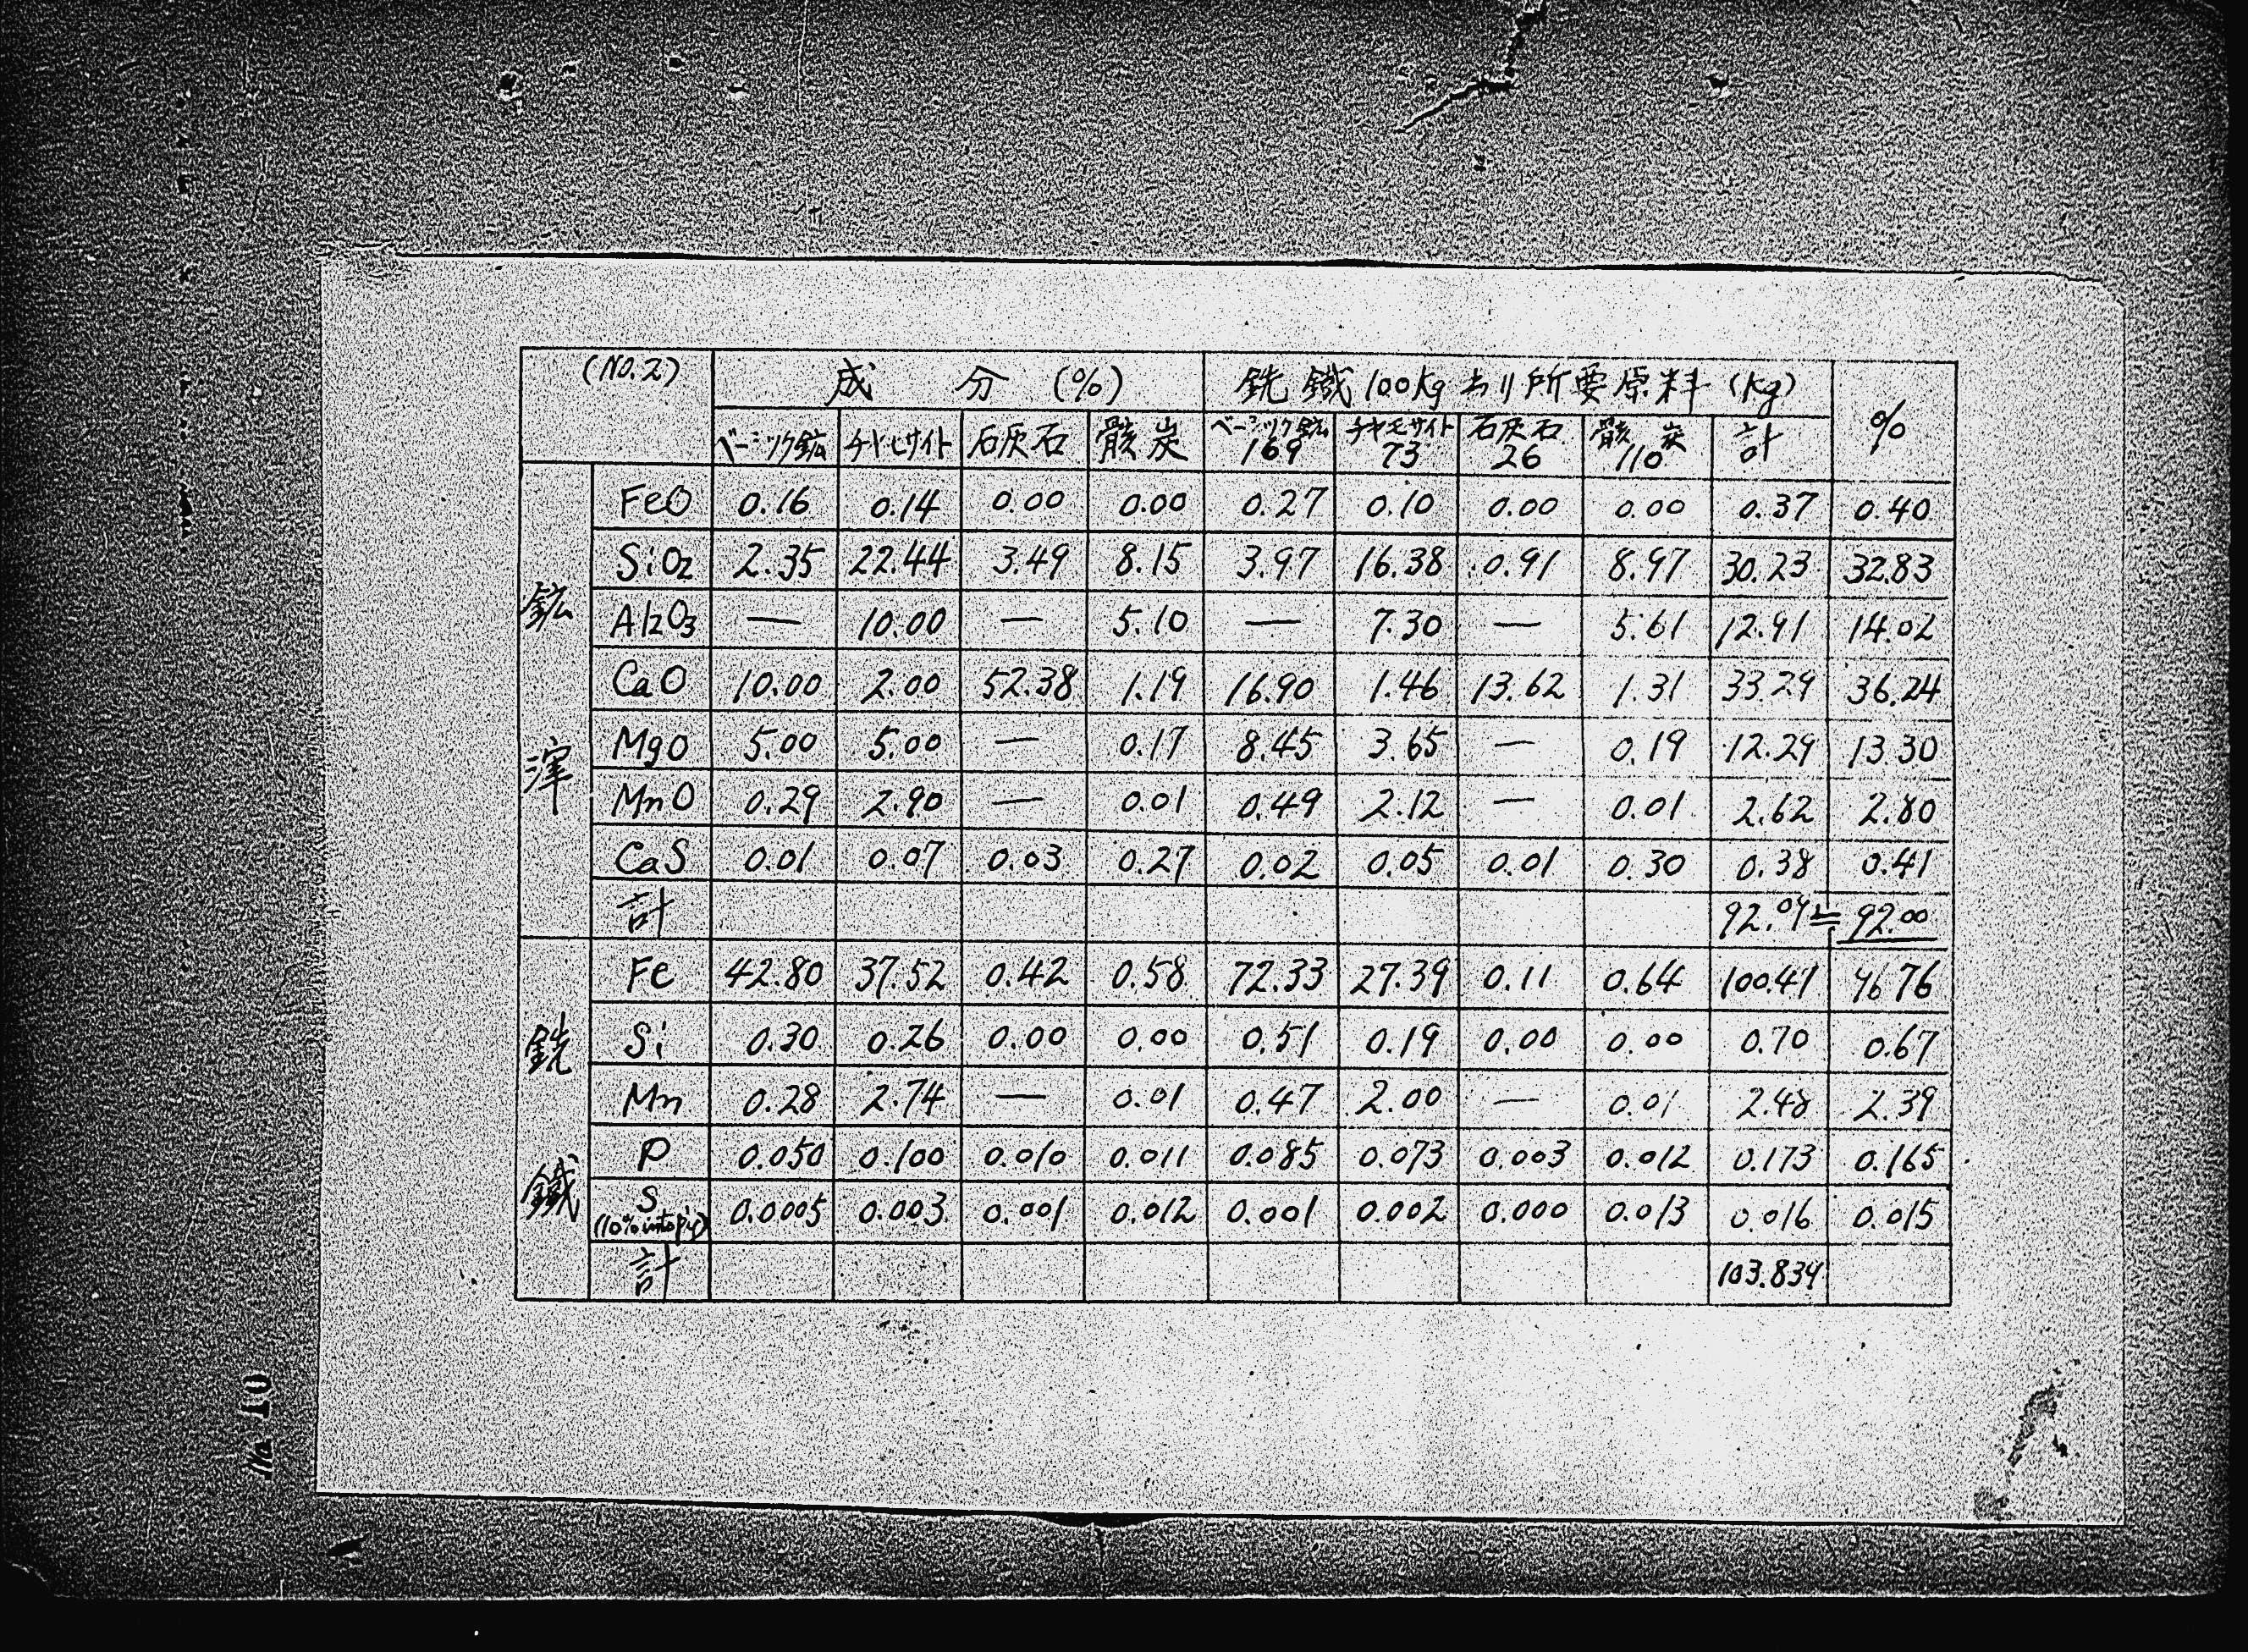 (NO.2) 成分 (%) 銑鐵100kg当り所要原料 (kg) %
ベーシック鉱 チヤモサイト 石灰石 骸炭 ベーシック鉱 169 チヤモサイト 73 石灰石 26 骸炭 110 計
鉱滓
FeO 0.16 0.14 0.00 0.00 0.27 0.10 0.00 0.00 0.37 0.40
SiO2 2.35 22.44 3.49 8.15 3.97 16.38 0.91 8.97 30.23 32.83
Al2O3 — 10.00 — 5.10 — 7.30 — 5.61 12.91 14.02
CaO 10.00 2.00 52.38 1.19 16.90 1.46 13.62 1.31 33.29 36.24
MgO 5.00 5.00 — 0.17 8.45 3.65 — 0.19 12.29 13.30
MnO 0.29 2.90 — 0.01 0.49 2.12 — 0.01 2.62 2.80
CaS 0.01 0.07 0.03 0.27 0.02 0.05 0.01 0.30 0.38 0.41
計 92.09≒92.00
銑鐵
Fe 42.80 37.52 0.42 0.58 72.33 27.39 0.11 0.64 100.47 96.76
Si 0.30 0.26 0.00 0.00 0.51 0.19 0.00 0.00 0.70 0.67
Mn 0.28 2.74 — 0.01 0.47 2.00 — 0.01 2.48 2.39
P 0.050 0.100 0.010 0.011 0.085 0.073 0.003 0.012 0.173 0.165
S (10% into pig) 0.0005 0.003 0.001 0.012 0.001 0.002 0.000 0.013 0.016 0.015
計 103.839
No 10